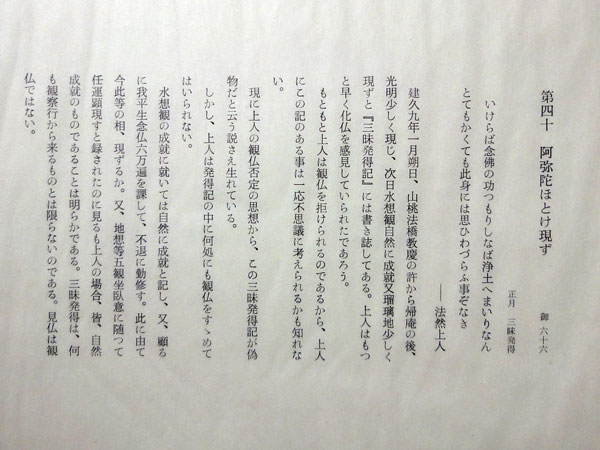 第四十　阿弥陀ほとけ現ず
御 六十六
正月　三昧発得
いけらば念佛の功つもりしなば浄土へまいりなん
とてもかくても此身には思ひわづらふ事ぞなき
――法然上人
建久九年一月朔日、山桃法橋教慶の許から帰庵の後、
光明少しく現じ、次日水想観自然に成就又瑠璃地少しく
現ずと『三昧発得記』には書き誌してある。上人はもつ
と早く化仏を感見していられたであろう。
もともと上人は観仏を拒けられるのであるから、上人
にこの記のある事は一応不思議に考えられるかも知れな
い。
現に上人の観仏否定の思想から、この三昧発得記が偽
物だと云う説さえ生れている。
しかし、上人は発得記の中に何処にも観仏をすゝめて
はいられない。
水想観の成就に就いては自然に成就と記し、又、顧る
に我平生念仏六万遍を課して、不退に勤修す。此に由て
今此等の相、現ずるか。又、地想等五観坐臥意に随つて
任運顕現すと録されたのに見るも上人の場合、皆、自然
成就のものであることは明らかである。三昧発得は、何
も観察行から来るものとは限らないのである。見仏は観
仏ではない。